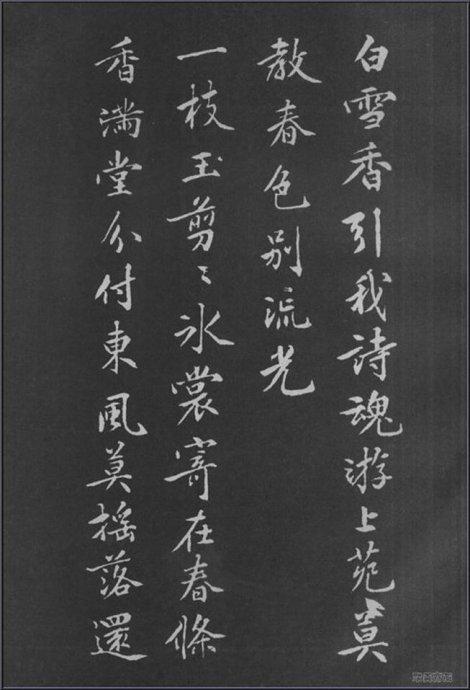 白雪香引我詩魂游上苑莫
教春色別流光
一枝玉剪〻冰裳寄在春條
香滿堂分付東風莫搖落還